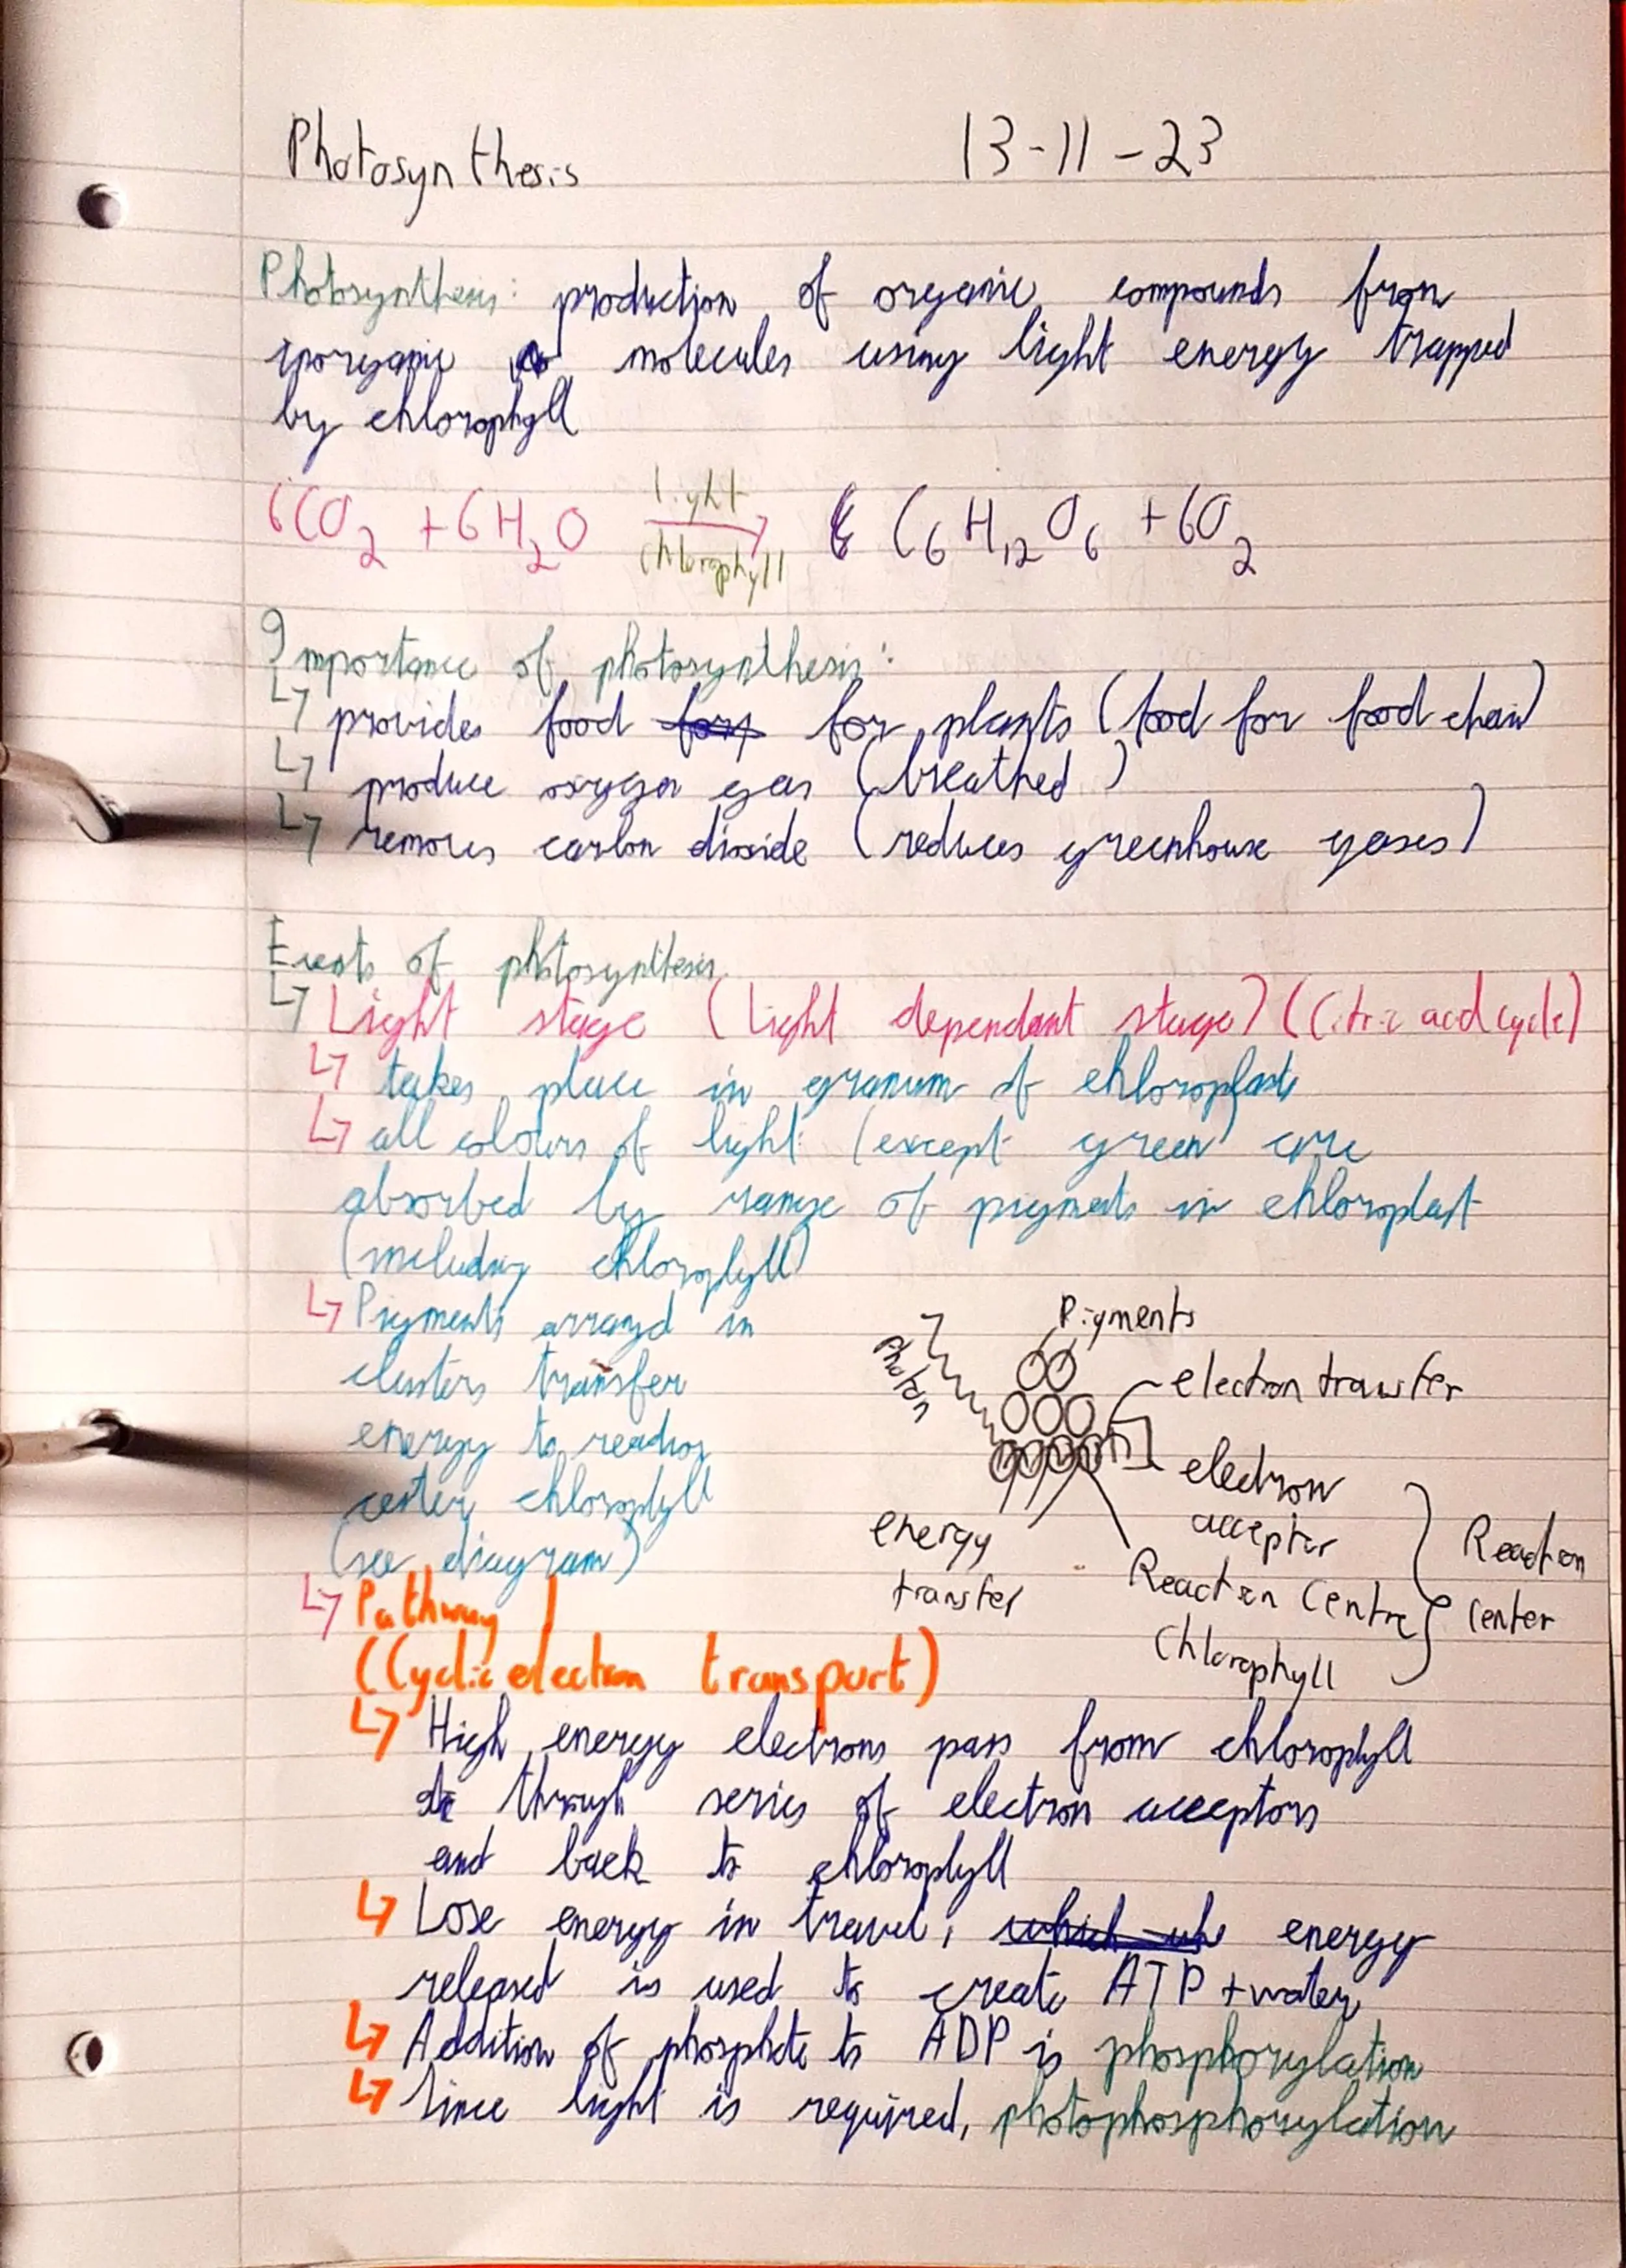 Photosynthesis 13-11-23
Photosynthesis: production of organic compounds from
inorganic molecules using light energy trapped
by chlorophyll
6CO₂ + 6H₂O light chlorophyll → C₆H₁₂O₆ + 6O₂
Importance of photosynthesis:
↳ provides food for for plants (food for food chain)
↳ produce oxygen gas (breathed)
↳ removes carbon dioxide (reduces greenhouse gases)
Events of photosynthesis
↳ Light stage (Light dependant stage) (Citric acid cycle)
↳ takes place in granum of chloroplasts
↳ all colours of light (except green) are
absorbed by range of pigments in chloroplast
(including chlorophyll)
↳ Pigments arranged in
clusters transfer
energy to reaction
center chlorophyll
(see diagram)
Pigments
photon
electron transfer
electron
acceptor
energy
transfer
Reaction Centre
Chlorophyll
Reaction
Center
↳ Pathway 1
(Cyclic electron transport)
↳ High energy electrons pass from chlorophyll
through series of electron acceptors
and back to chlorophyll
↳ Lose energy in travel, which energy
released is used to create ATP + water
↳ Addition of phosphate to ADP is phosphorylation
↳ Since light is required, photophosphorylation